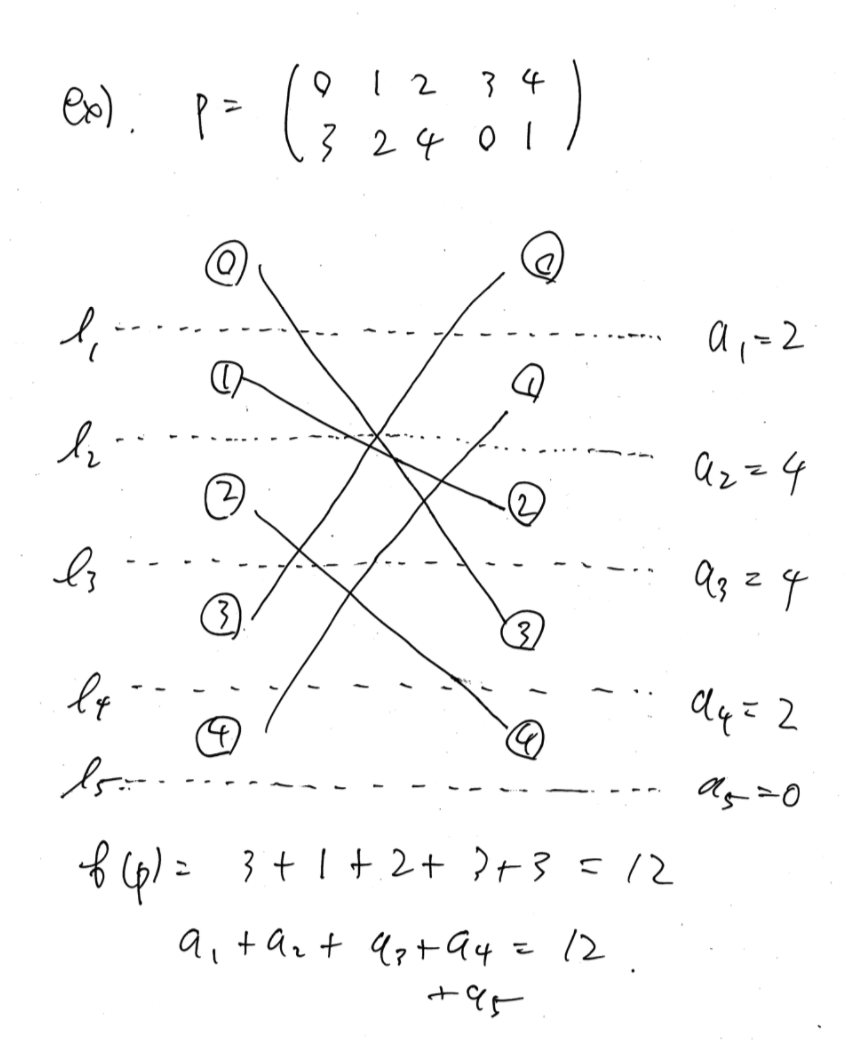 ex). p = ( 0 1 2 3 4
3 2 4 0 1 )
0 0
l₁ a₁=2
1 1
l₂ a₂=4
2 2
l₃ a₃=4
3 3
l₄ a₄=2
4 4
l₅ a₅=0
f(p) = 3+1+2+3+3 = 12
a₁+a₂+a₃+a₄ = 12.
+a₅